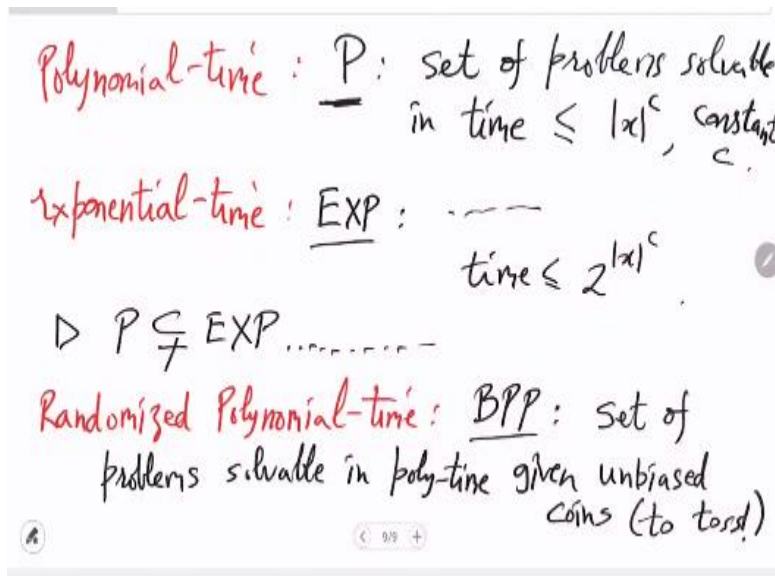 Polynomial-time : P : set of problems solvable
in time ≤ |x|^c, constant
c.
Exponential-time : EXP : -----
time ≤ 2^{|x|^c}.
▷ P ⊊ EXP ...........
Randomized Polynomial-time : BPP : set of
problems solvable in poly-time given unbiased
coins (to toss!)
9/9